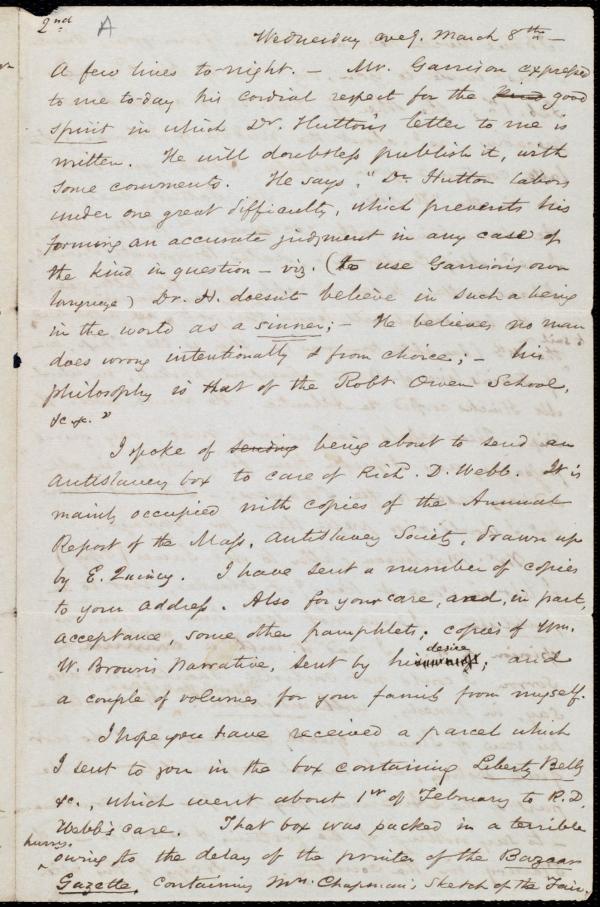 2nd A
Wednesday eveg. March 8th. —
A few lines to-night. — Mr. Garrison expressed
to me to-day his cordial respect for the kind good
spirit in which Dr. Hutton's letter to me is
written. He will doubtless publish it, with
some comments. He says, "Dr. Hutton labors
under one great difficulty, which prevents his
forming an accurate judgment in any case of
the kind in question — viz. (to use Garrison's own
language) Dr. H. doesn't believe in such a being
in the world as a sinner; — He believes no man
does wrong intentionally & from choice; — his
philosophy is that of the Robt. Owen School,
&c &c."
I spoke of sending being about to send an
Antislavery box to care of Richd. D. Webb. It is
mainly occupied with copies of the Annual
Report of the Mass. Antislavery Society, drawn up
by E. Quincy. I have sent a number of copies
to your address. Also for your care, and, in part,
acceptance, some other pamphlets; copies of Wm.
desire
W. Brown's Narrative, sent by his; and
a couple of volumes for your family from myself.
I hope you have received a parcel which
I sent to you in the box containing Liberty Bells
&c., which went about 1st of February to R. D.
Webb's care. That box was packed in a terrible
hurry,
owing to the delay of the printer of the Bazaar
Gazette, containing Mrs. Chapman's Sketch of the Fair.